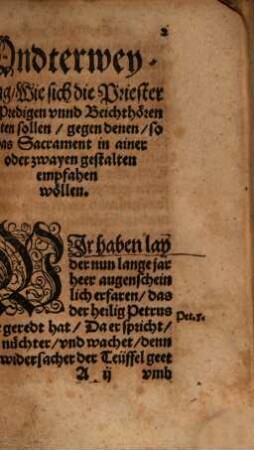 2
Vndterwey-
ng/Wie sich die Priester
Predigen vnnd Beichthören
ten sollen / gegen denen / so
das Sacrament in ainer
oder zwayen gestalten
empfahen
wöllen.
WIr haben lay
der nun lange jar
heer augenschein
lich erfaren / das
der heilig Petrus
geredt hat / Da er spricht /
Pet. 5.
nüchter / vnd wachet / denn
widersacher der Teüffel geet
A ij vmb